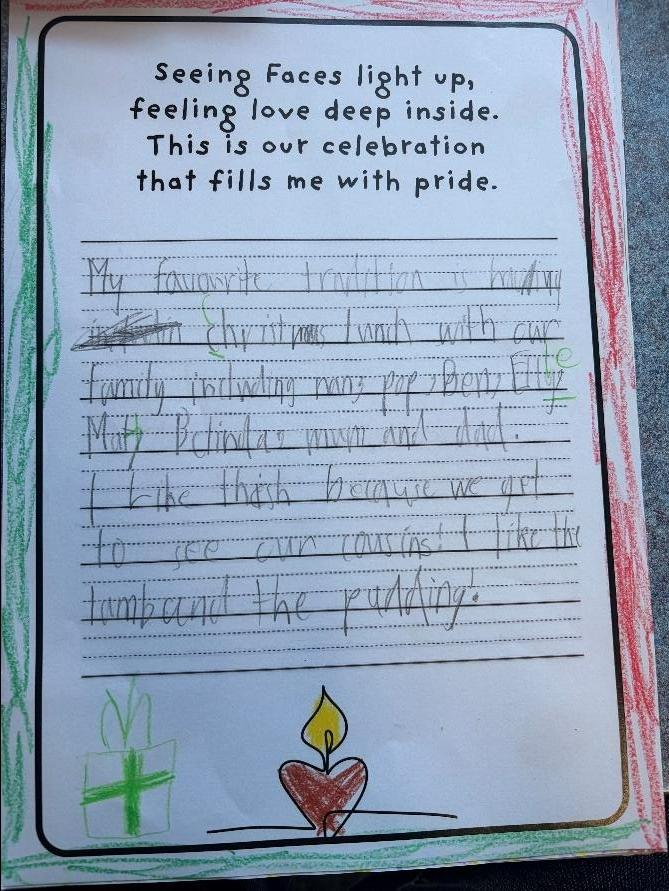 Seeing Faces light up,
feeling love deep inside.
This is our celebration
that fills me with pride.
My favourite tradition is having
christmas lunch with our
family including nan, pop, Ben,
Matt Belinda, mum and dad.
I Like this because we get
to see our cousins! I like the
lamb and the pudding!